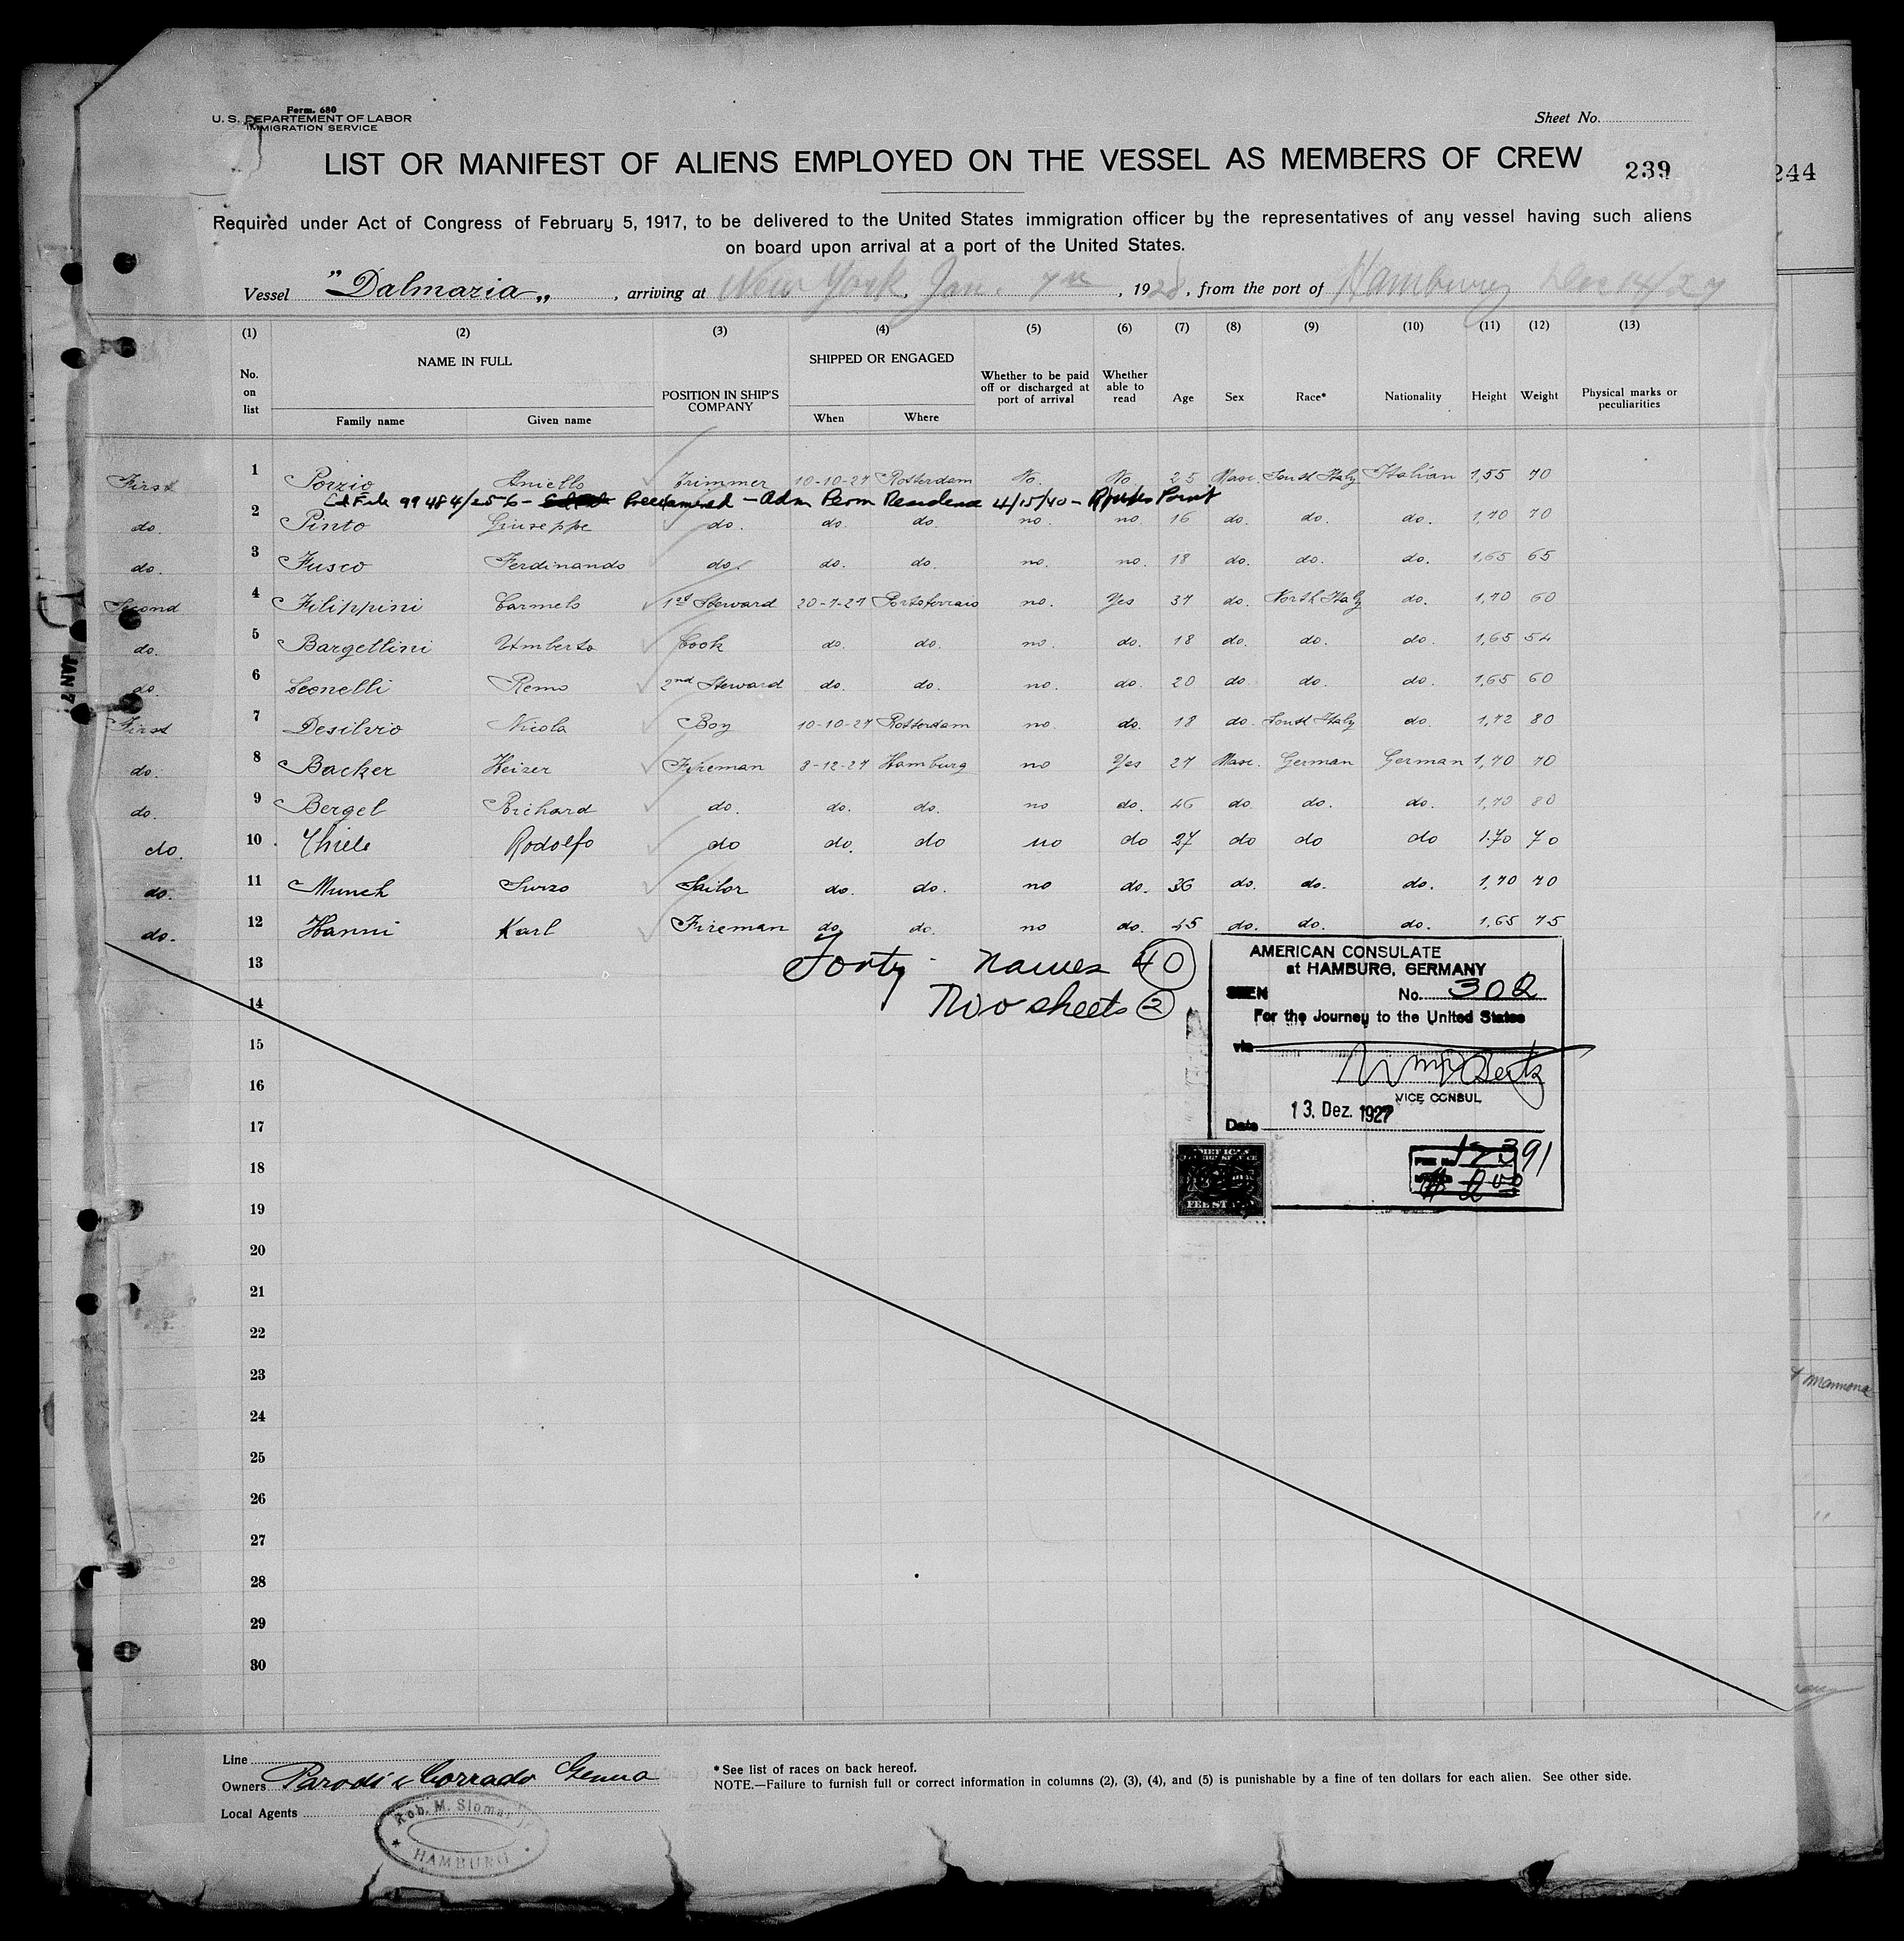 Form. 680
U. S. DEPARTEMENT OF LABOR
IMMIGRATION SERVICE
Sheet No.
LIST OR MANIFEST OF ALIENS EMPLOYED ON THE VESSEL AS MEMBERS OF CREW
239
244
Required under Act of Congress of February 5, 1917, to be delivered to the United States immigration officer by the representatives of any vessel having such aliens
on board upon arrival at a port of the United States.
Vessel "Dalmazia„ , arriving at New York, Jan. 7th , 1928, from the port of Hamburg Dec 14/27
(1) (2) (3) (4) (5) (6) (7) (8) (9) (10) (11) (12) (13)
No. on list
NAME IN FULL
Family name Given name
POSITION IN SHIP'S COMPANY
SHIPPED OR ENGAGED
When Where
Whether to be paid off or discharged at port of arrival
Whether able to read
Age Sex Race* Nationality Height Weight
Physical marks or peculiarities
First 1 Porzio Aniello Trimmer 10-10-27 Rotterdam No. No 25 Masc. South Italy Italian 1,55 70
99484/256 - Preexamined - Adm Perm Residence 4/15/40 - Rouses Point
do. 2 Pinto Giuseppe do. do. do. no. no. 16 do. do. do. 1,70 70
do. 3 Fusco Ferdinando do. do. do. no. no. 18 do. do. do. 1,65 65
Second 4 Filippini Carmelo 1st Steward 20-7-27 Portoferraio no. Yes 37 do. North Italy do. 1,70 60
do. 5 Bargellini Umberto Cook do. do. no. do. 18 do. do. do. 1,65 54
do. 6 Leonelli Remo 2nd Steward do. do. no. do. 20 do. do. do. 1,65 60
First 7 Desilvio Nicola Boy 10-10-27 Rotterdam no do. 18 do. South Italy do. 1,72 80
do. 8 Backer Heizer Fireman 8-12-27 Hamburg no Yes 27 Masc. German German 1,70 70
do. 9 Bergel Richard do. do. do. no do. 46 do. do. do. 1,70 80
do. 10 Thiele Rodolfo do do. do no do 27 do do do 1.70 70
do. 11 Munch Sailor do. do. no do. 36 do. do. do. 1,70 70
do. 12 Hanni Karl Fireman do. do. no do. 45 do. do. do. 1,65 75
13 Forty - names 40
14 Two sheets 2
15
16
17
18
19
20
21
22
23
24
25
26
27
28
29
30
JAN 7
AMERICAN CONSULATE
at HAMBURG, GERMANY
SEEN No. 302
For the Journey to the United States
via
VICE CONSUL
Date 13. Dez. 1927
12391
FEE STAMP
Line
Owners Parodi & Corrado Genua
Local Agents
Rob. M. Sloman Jr.
HAMBURG
*See list of races on back hereof.
NOTE.—Failure to furnish full or correct information in columns (2), (3), (4), and (5) is punishable by a fine of ten dollars for each alien. See other side.